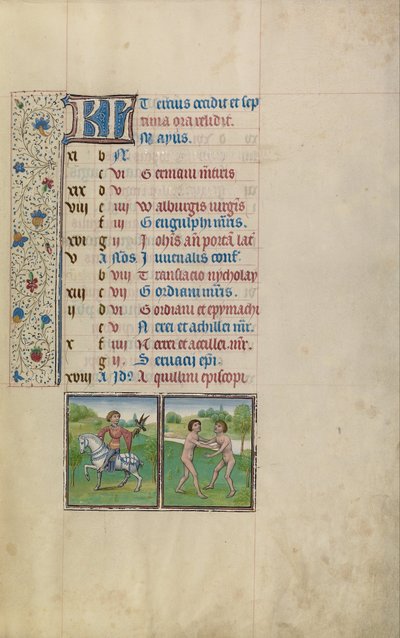 KL Tercius occidit et sep
tima ora relidit.
Mayus.
xi b N
c vi Germani mͬtiris
xix d v
viii e iiii Walburgis uirgīs
f iii Gengulphi mͬis.
xvi g ii Johīs añ portā lat̄
v A Nos. Juuenalis conf̄.
b viii Translacio nycholay
xiii c vii Gordiani mͬis.
ii d vi Gordiani et epymachi
e v Nerei et achillei mͬr.
x f iiii Nerei et accillei mͬr.
g ii. Seruacii ep̄i.
xviii A Jdꝰ Aquillini episcopi